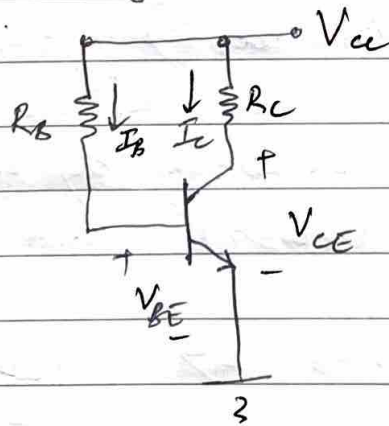 Vcc
RB
IB
IC
RC
+
VCE
+
-
VBE
-
3